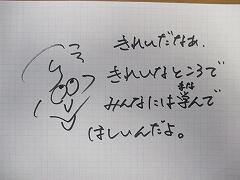 きれいだなぁ。
きれいなところで
みんなには学んで
まな
ほしいんだよ。